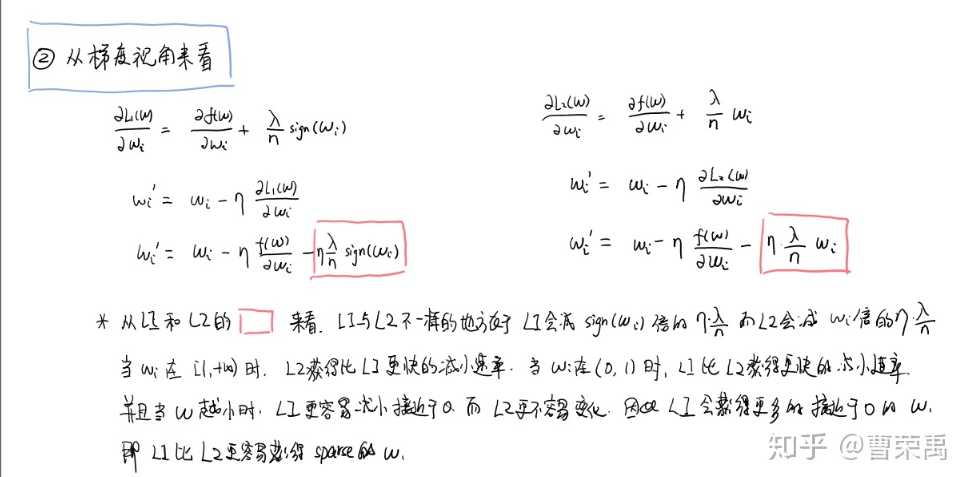 ② 从梯度视角来看
∂L₁(w)/∂wᵢ = ∂f(w)/∂wᵢ + λ/n sign(wᵢ)
∂L₂(w)/∂wᵢ = ∂f(w)/∂wᵢ + λ/n wᵢ
wᵢ' = wᵢ - η ∂L₁(w)/∂wᵢ
wᵢ' = wᵢ - η ∂L₂(w)/∂wᵢ
wᵢ' = wᵢ - η f(w)/∂wᵢ - η λ/n sign(wᵢ)
wᵢ' = wᵢ - η f(w)/∂wᵢ - η·λ/n wᵢ
* 从L1和L2的 来看. L1与L2不一样的地方在于 L1会减 sign(wᵢ) 倍的 η·λ/n 而L2会减 wᵢ倍的η·λ/n
当 wᵢ在 [1,+∞) 时. L2获得比L1更快的减小速率. 当 wᵢ在(0,1)时, L1比L2获得更快的减小速率.
并且当w越小时. L1更容易减小接近于0. 而L2更不容易变化. 因此 L1会获得更多的接近于0的 w.
即 L1比L2更容易获得 sparse的 w.
知乎 @曹荣禹